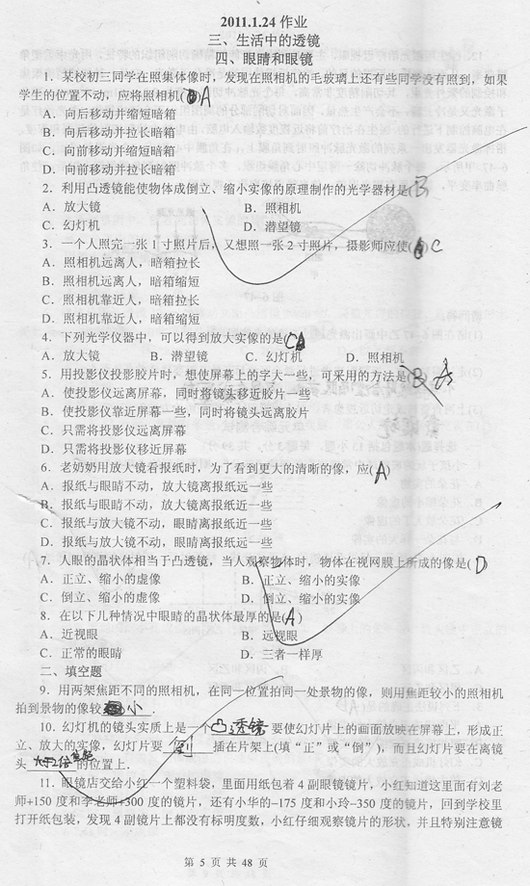 2011.1.24 作业
三、生活中的透镜
四、眼睛和眼镜
1．某校初三同学在照集体像时，发现在照相机的毛玻璃上还有些同学没有照到，如果
学生的位置不动，应将照相机( )A
A．向后移动并缩短暗箱
B．向后移动并拉长暗箱
C．向前移动并缩短暗箱
D．向前移动并拉长暗箱
2．利用凸透镜能使物体成倒立、缩小实像的原理制作的光学器材是( B
A．放大镜 B．照相机
C．幻灯机 D．潜望镜
3．一个人照完一张 1 寸照片后，又想照一张 2 寸照片，摄影师应使( ) C
A．照相机远离人，暗箱拉长
B．照相机远离人，暗箱缩短
C．照相机靠近人，暗箱拉长
D．照相机靠近人，暗箱缩短
4．下列光学仪器中，可以得到放大实像的是( C
A．放大镜 B．潜望镜 C．幻灯机 D．照相机
5．用投影仪投影胶片时，想使屏幕上的字大一些，可采用的方法是( B A
A．使投影仪远离屏幕，同时将镜头移近胶片一些
B．使投影仪靠近屏幕一些，同时将镜头远离胶片
C．只需将投影仪远离屏幕
D．只需将投影仪移近屏幕
6．老奶奶用放大镜看报纸时，为了看到更大的清晰的像，应( A )
A．报纸与眼睛不动，放大镜离报纸远一些
B．报纸与眼睛不动，放大镜离报纸近一些
C．报纸与放大镜不动，眼睛离报纸近一些
D．报纸与放大镜不动，眼睛离报纸远一些
7．人眼的晶状体相当于凸透镜，当人观察物体时，物体在视网膜上所成的像是( D )
A．正立、缩小的虚像 B．正立、缩小的实像
C．倒立、缩小的虚像 D．倒立、缩小的实像
8．在以下几种情况中眼睛的晶状体最厚的是( A )
A．近视眼 B．远视眼
C．正常的眼睛 D．三者一样厚
二、填空题
9．用两架焦距不同的照相机，在同一位置拍同一处景物的像，则用焦距较小的照相机
拍到景物的像较 小 ．
10．幻灯机的镜头实质上是一个 凸透镜 要使幻灯片上的画面放映在屏幕上，形成正
立、放大的实像，幻灯片要 倒 插在片架上(填“正”或“倒”)，而且幻灯片要在离镜
头 的位置上．
11．眼镜店交给小红一个塑料袋，里面用纸包着 4 副眼镜镜片，小红知道这里面有刘老
师+150 度和李老师+300 度的镜片，还有小华的–175 度和小玲–350 度的镜片，回到学校里
打开纸包装，发现 4 副镜片上都没有标明度数，小红仔细观察镜片的形状，并且特别注意镜
第 5 页 共 48 页